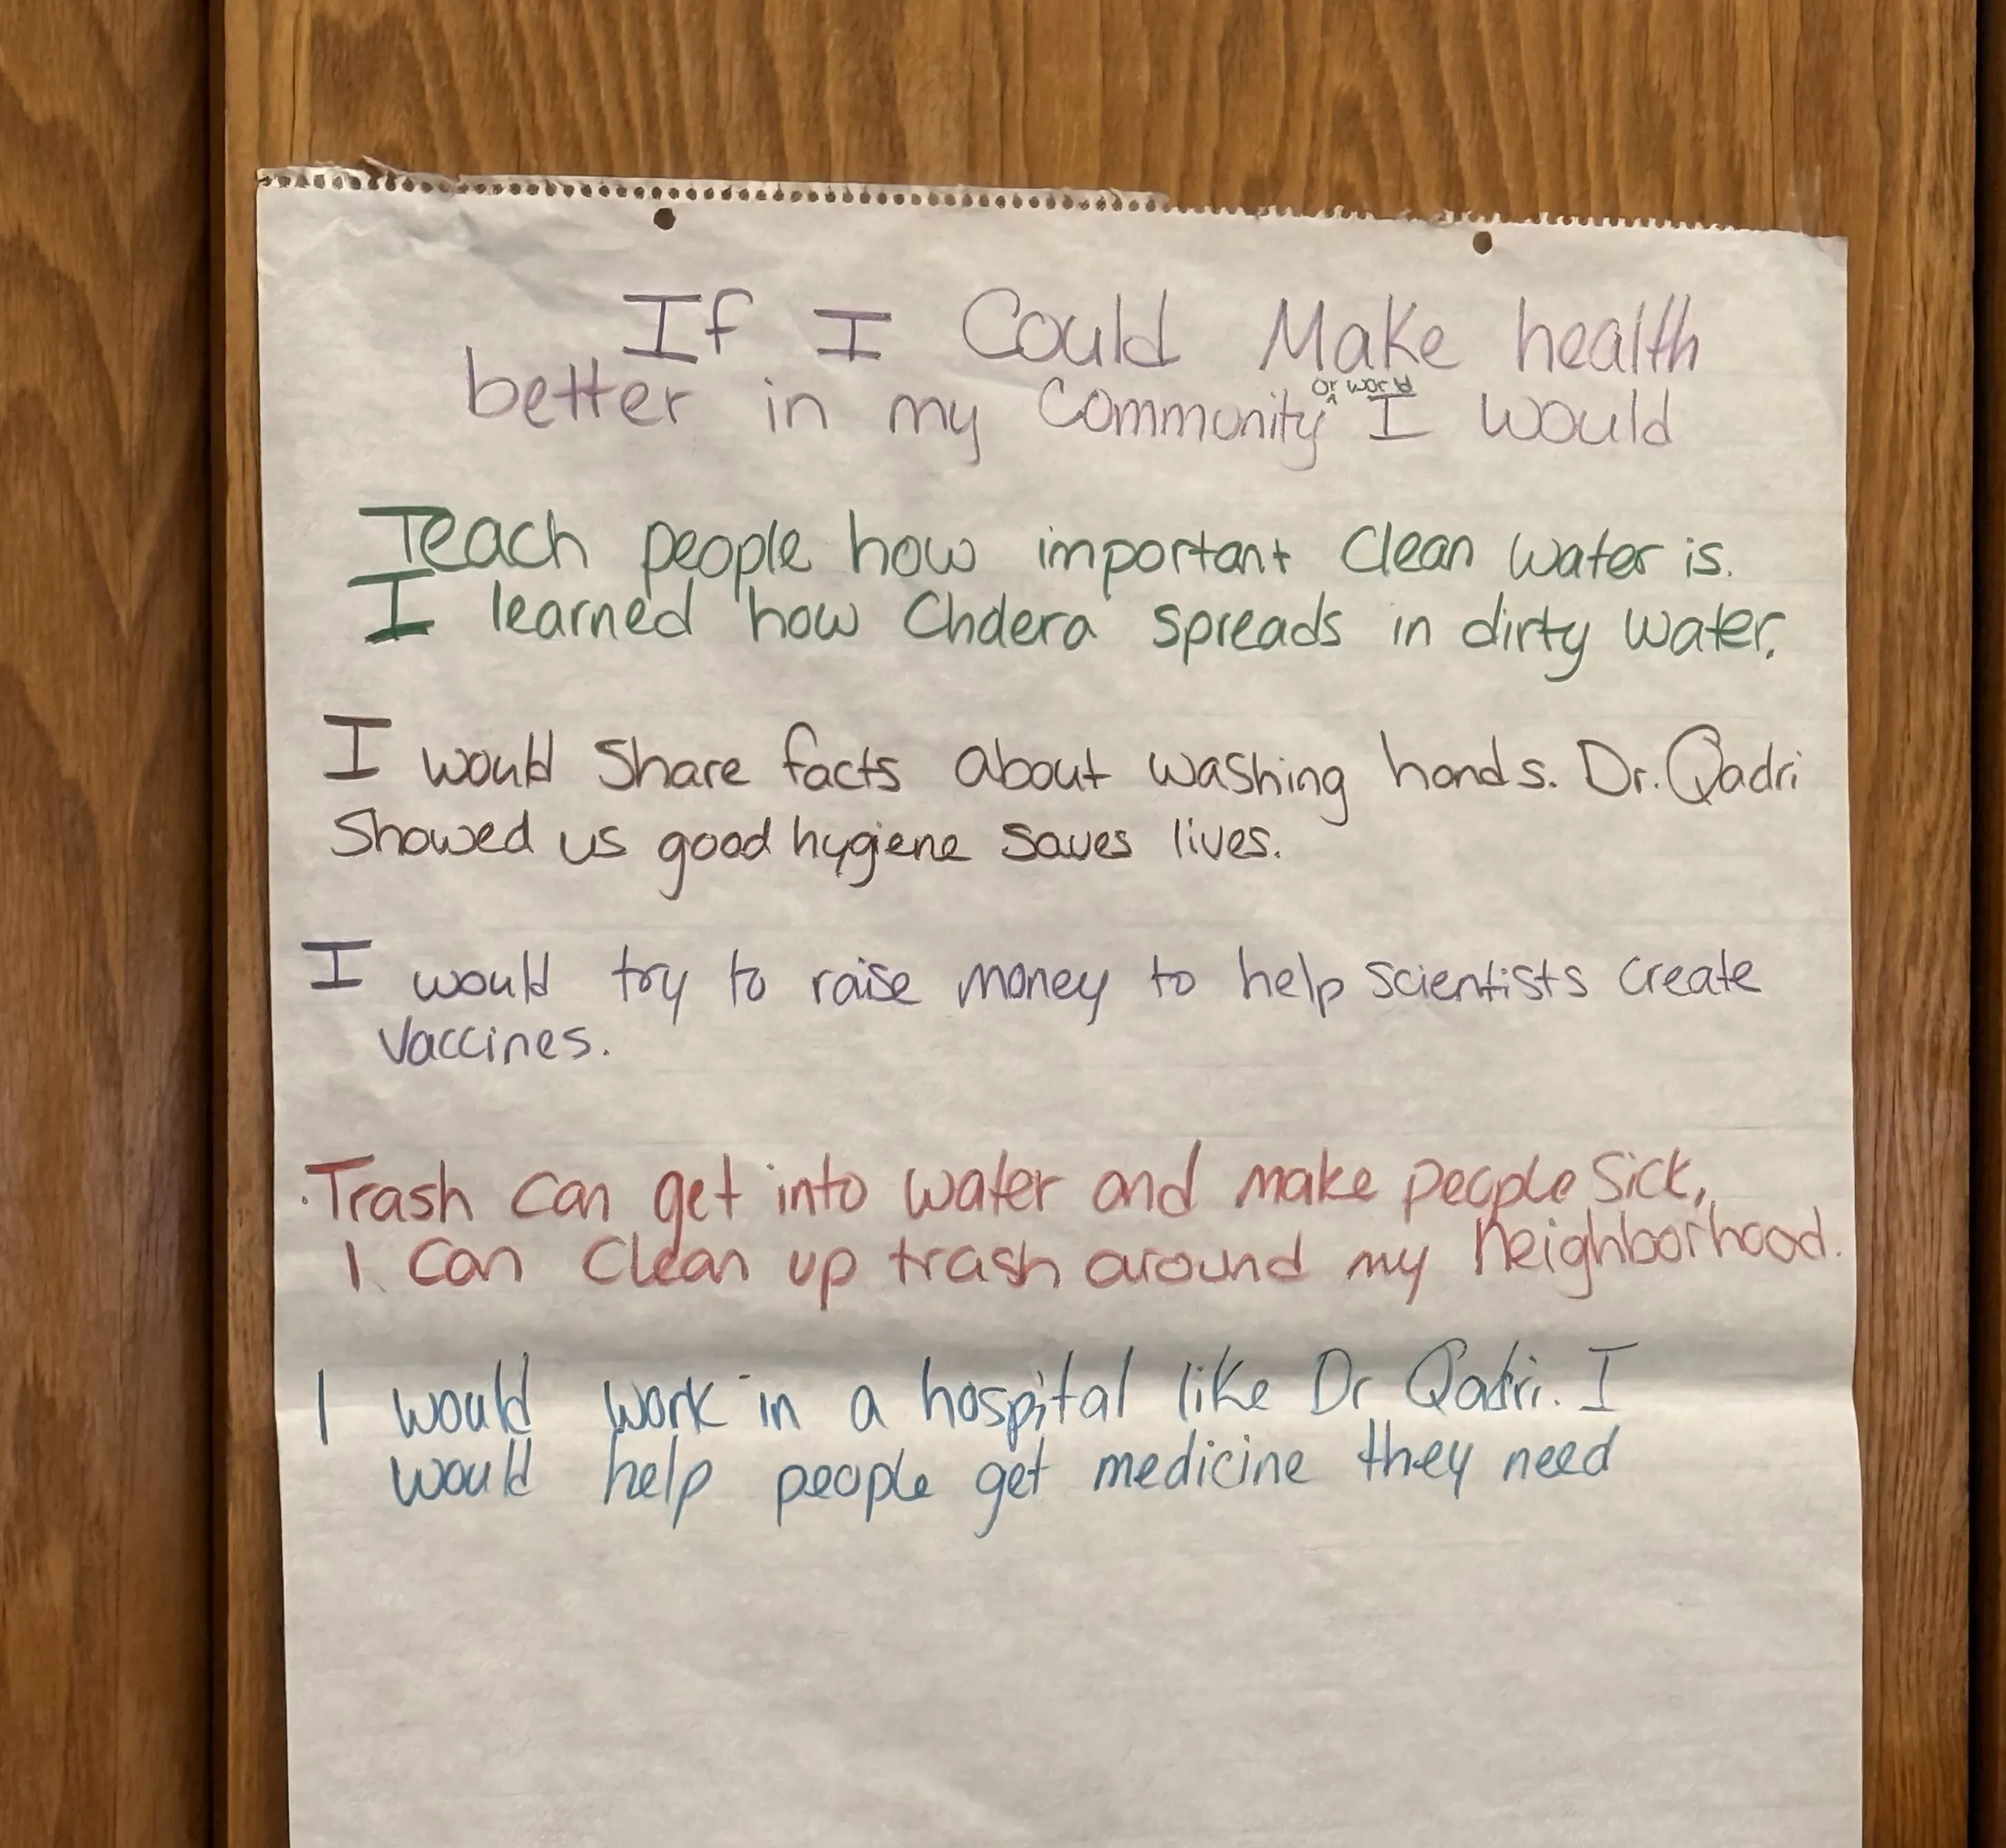 If I Could Make health
better in my Community or world I would
Teach people how important Clean water is.
I learned how Cholera spreads in dirty water.
I would Share facts about washing hands. Dr. Qadri
Showed us good hygiene saves lives.
I would try to raise money to help scientists create
vaccines.
Trash can get into water and make people sick,
I can clean up trash around my neighborhood.
I would work in a hospital like Dr Qadri. I
would help people get medicine they need